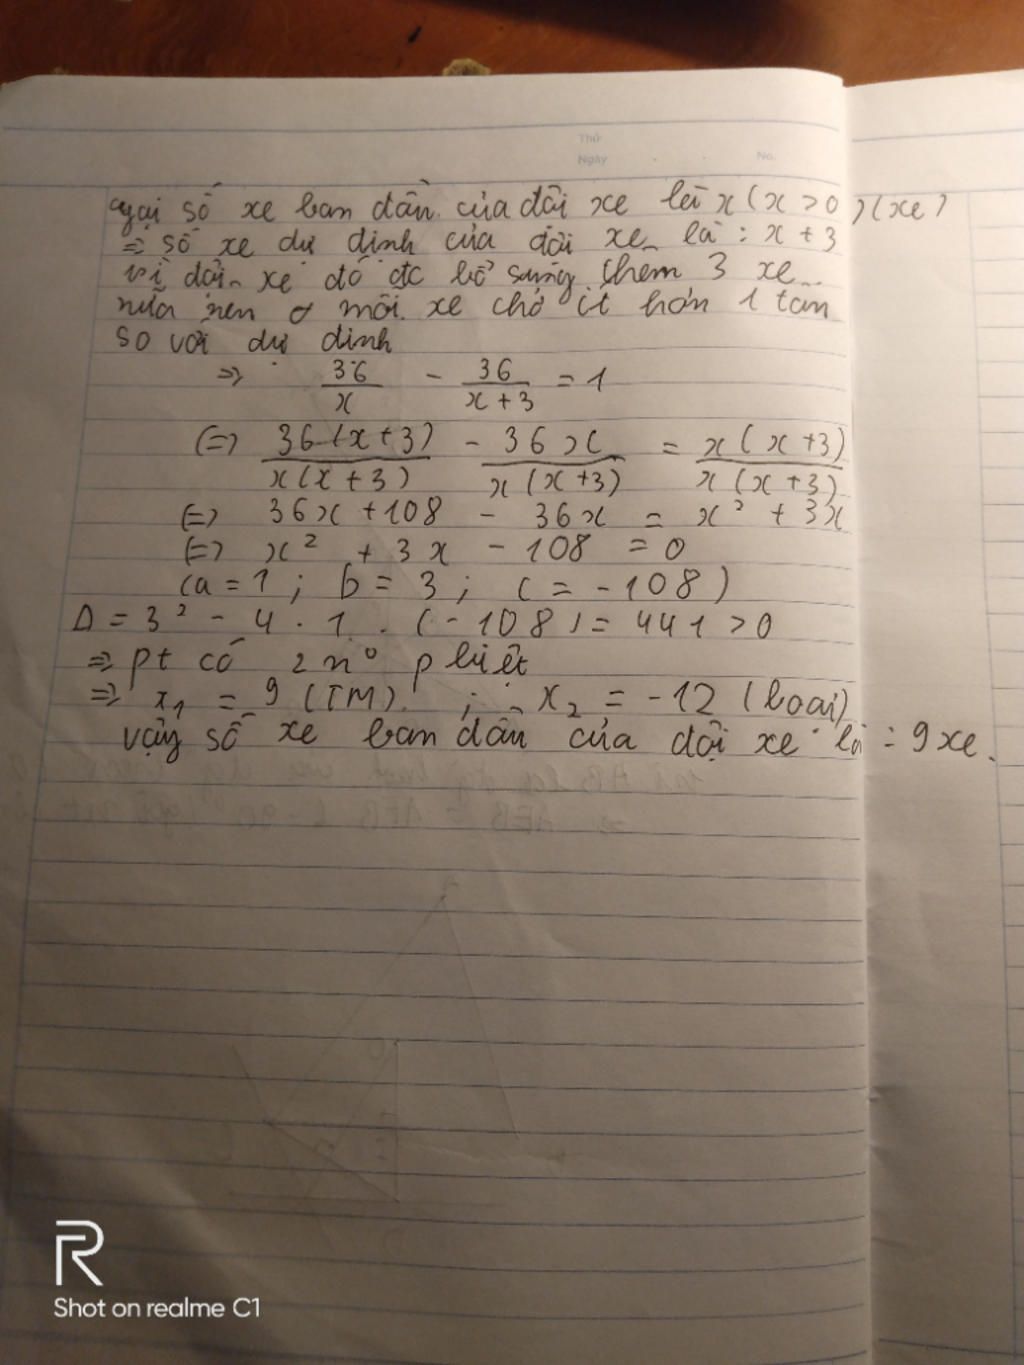 Thứ
Ngày . . No.
Gọi số xe ban đầu của đội xe là x (x > 0) (xe)
=> số xe dự định của đội xe là : x + 3
vì đội xe đó đc bổ sung thêm 3 xe
nữa nên ở mỗi xe chở ít hơn 1 tấn
so với dự định
=> 36/x - 36/(x + 3) = 1
(=) 36(x+3)/x(x+3) - 36x/x(x+3) = x(x+3)/x(x+3)
(=) 36x + 108 - 36x = x² + 3x
(=) x² + 3x - 108 = 0
(a = 1 ; b = 3 ; c = -108)
Δ = 3² - 4 . 1 . (-108) = 441 > 0
=> pt có 2 n° p biệt
=> x₁ = 9 (TM) ; x₂ = -12 (loại)
vậy số xe ban đầu của đội xe là : 9 xe.
Shot on realme C1